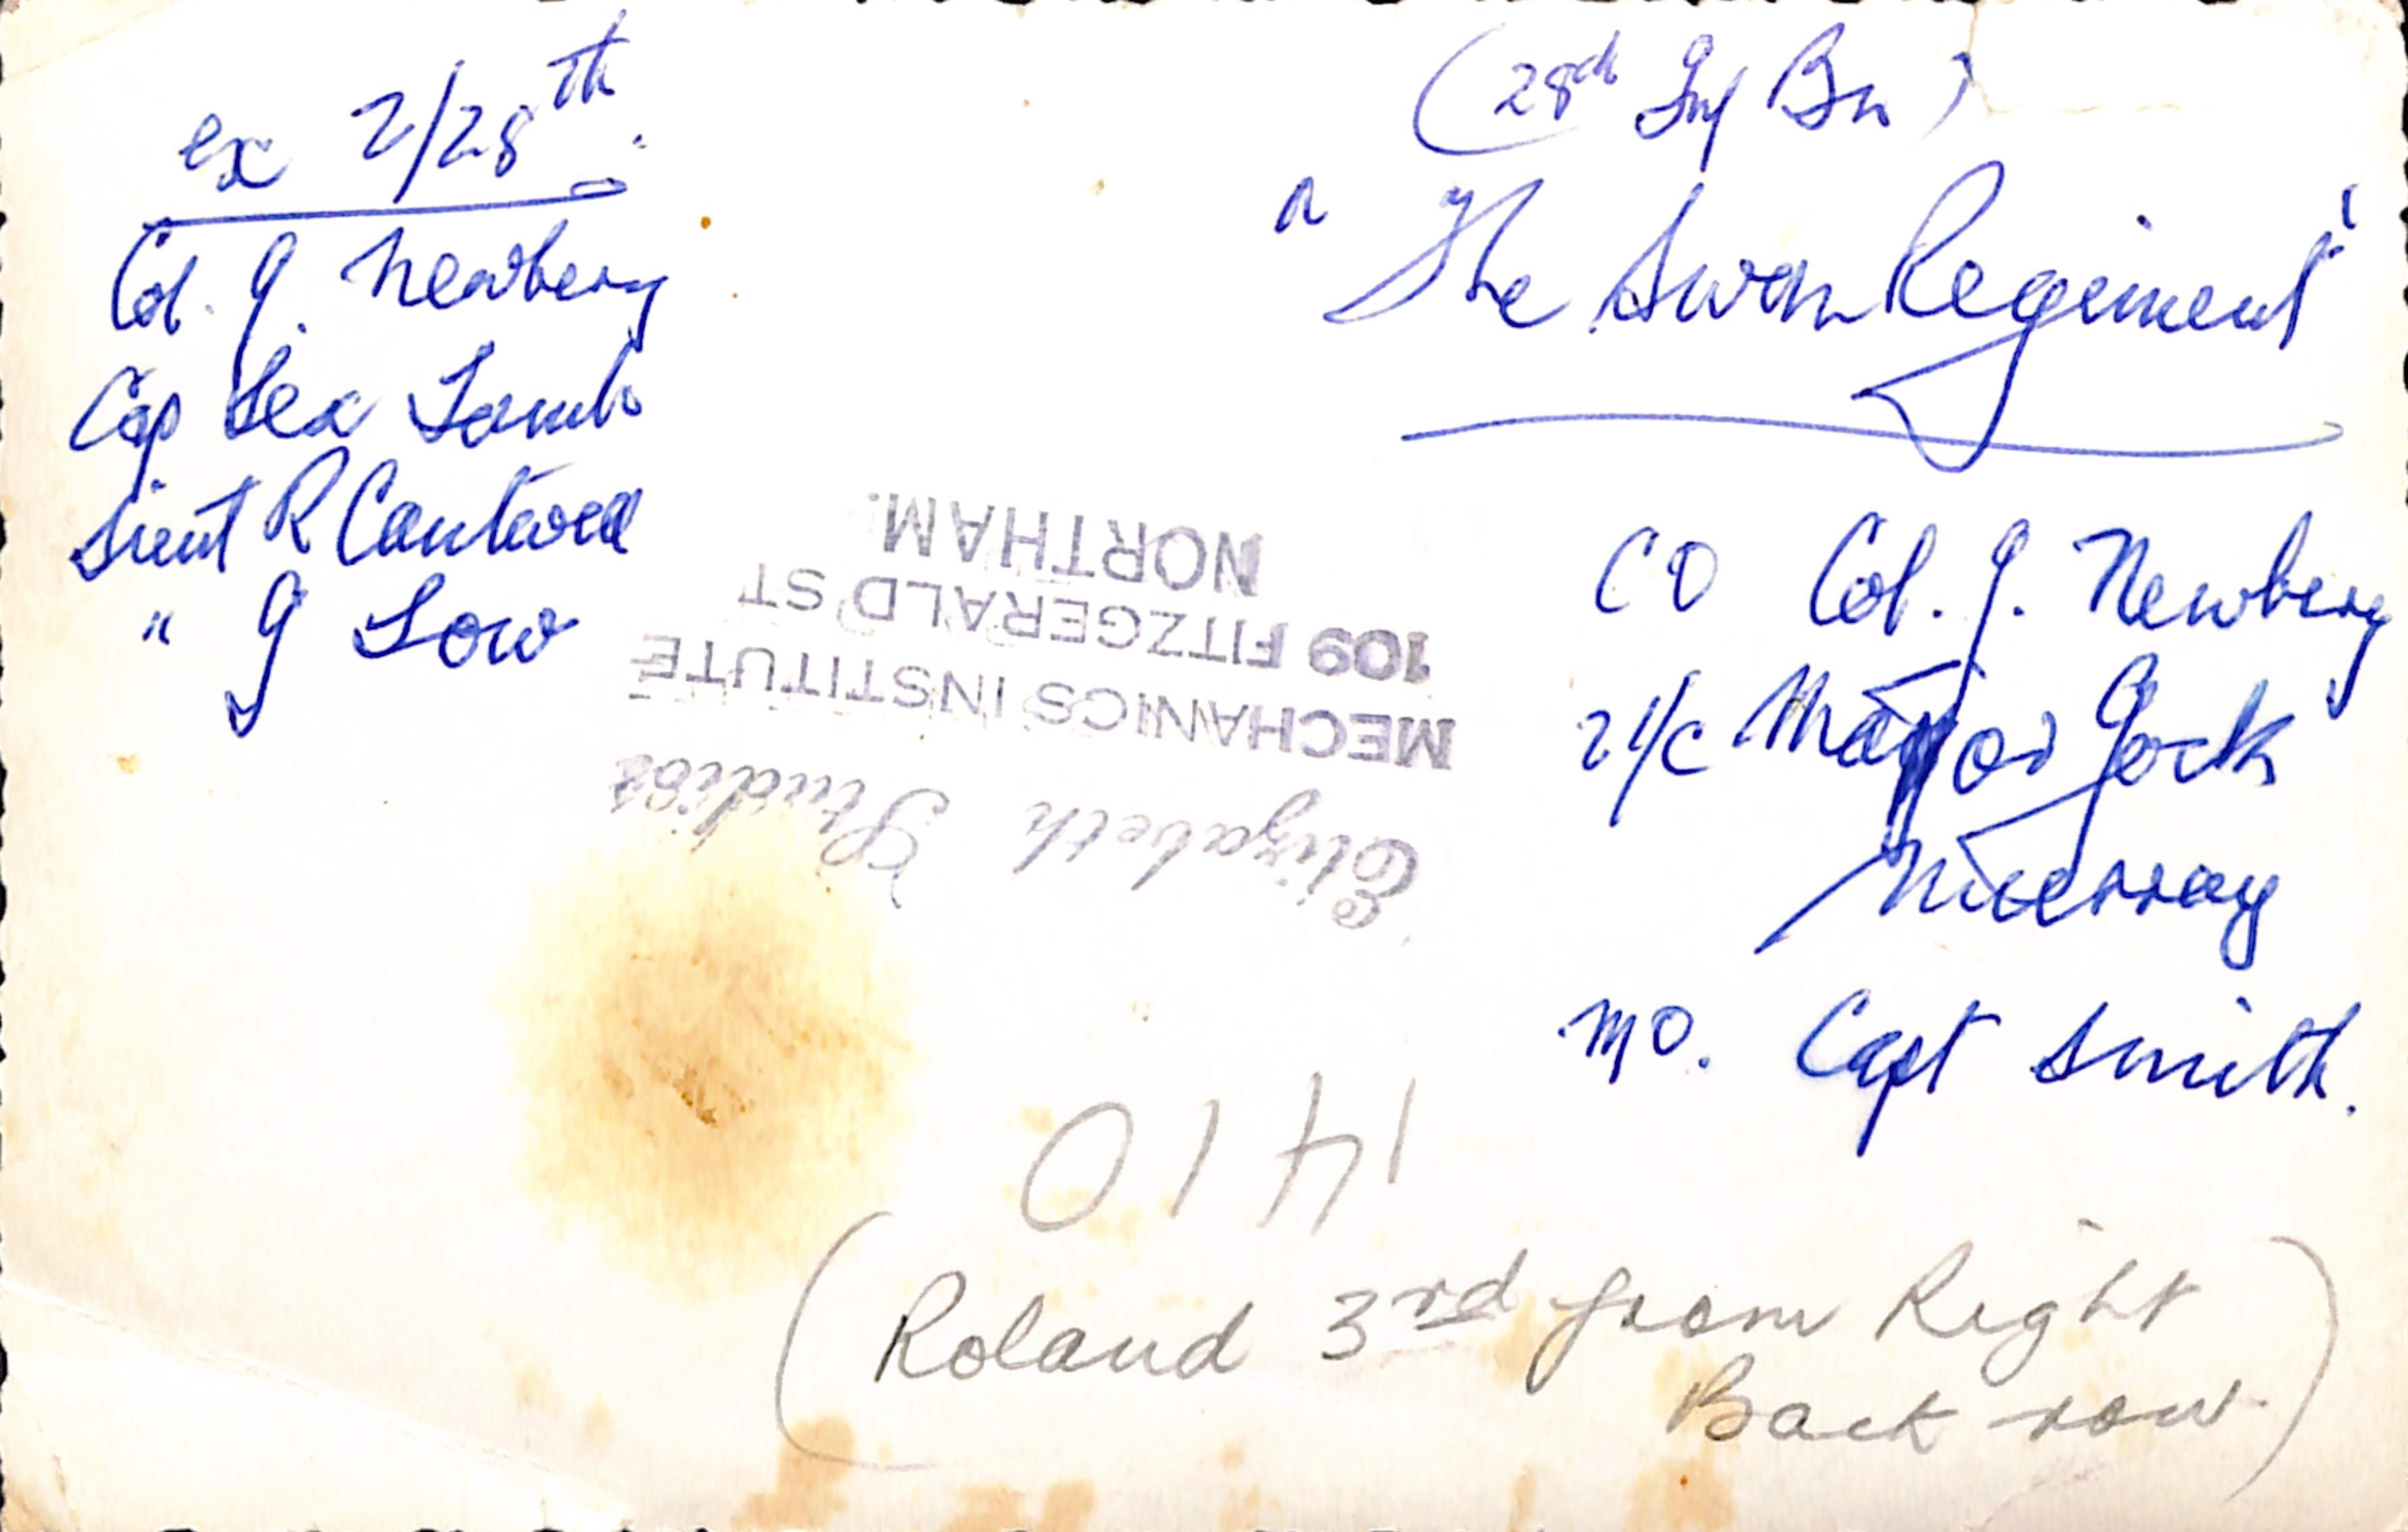 ex 2/28th.
Col. J. Newbery
Cap Lex Lamb
Lieut R Cantwell
" J Low
(28th Inf Bn)
"The Swan Regiment"
CO Col. J. Newbery
2I/C Major Jock
Murray
MO. Capt Smith.
Elizabeth Studios
MECHANICS INSTITUTE
109 FITZGERALD ST
NORTHAM.
1410
(Roland 3rd from Right
Back row.)